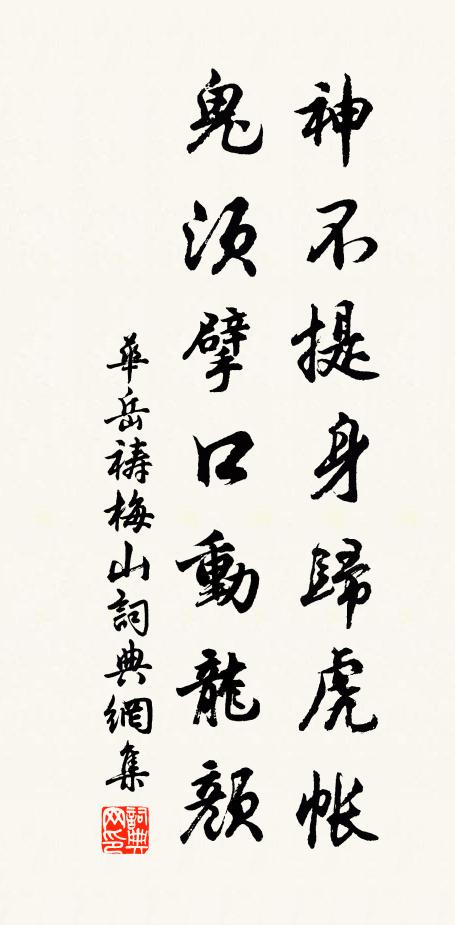 神不提身歸虎帳
鬼須擘口動龍顏
華岳禱梅山詞典網集
詞典网印